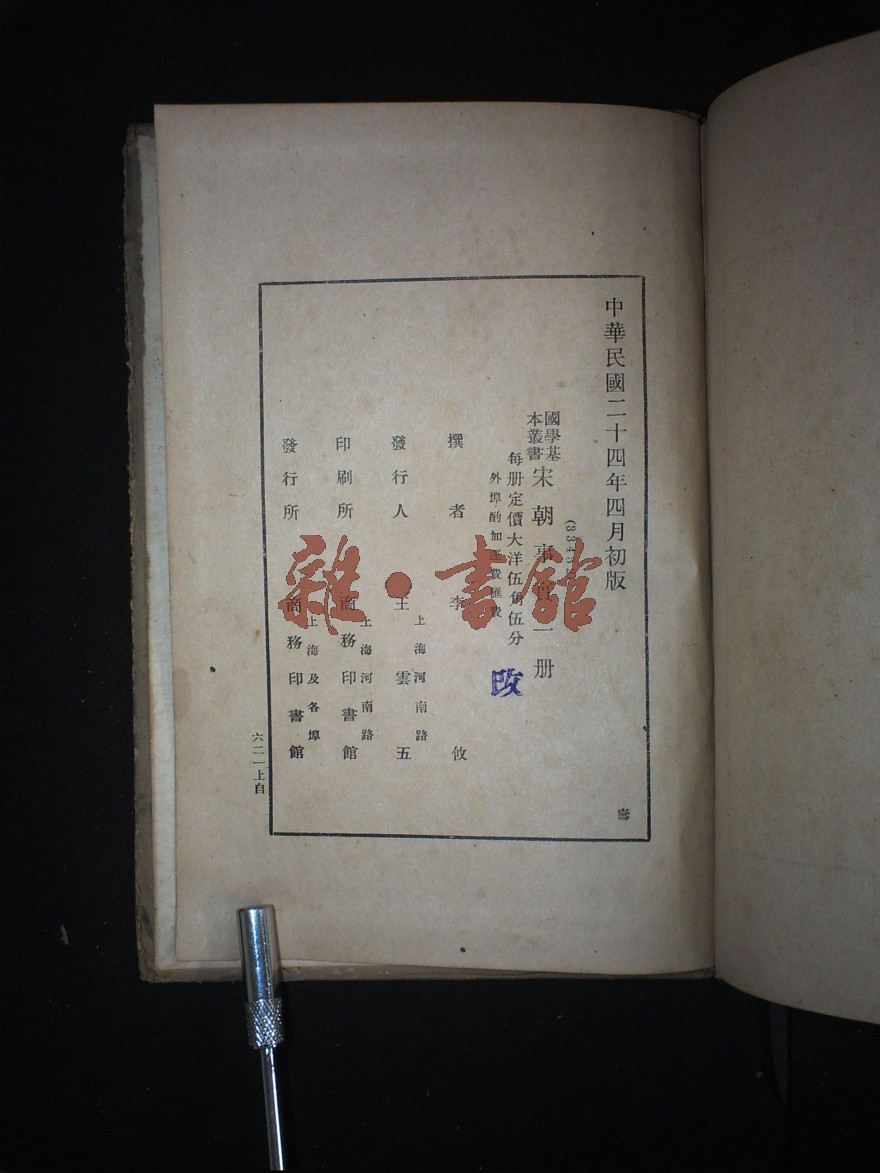 中華民國二十四年四月初版
國學基
本叢書
宋朝事實一册
每册定價大洋伍角伍分
外埠酌加運費匯費
撰者 李攸
上海河南路
發行人 王雲五
上海河南路
印刷所 商務印書館
上海及各埠
發行所 商務印書館
六二一上自
政
雜·書館